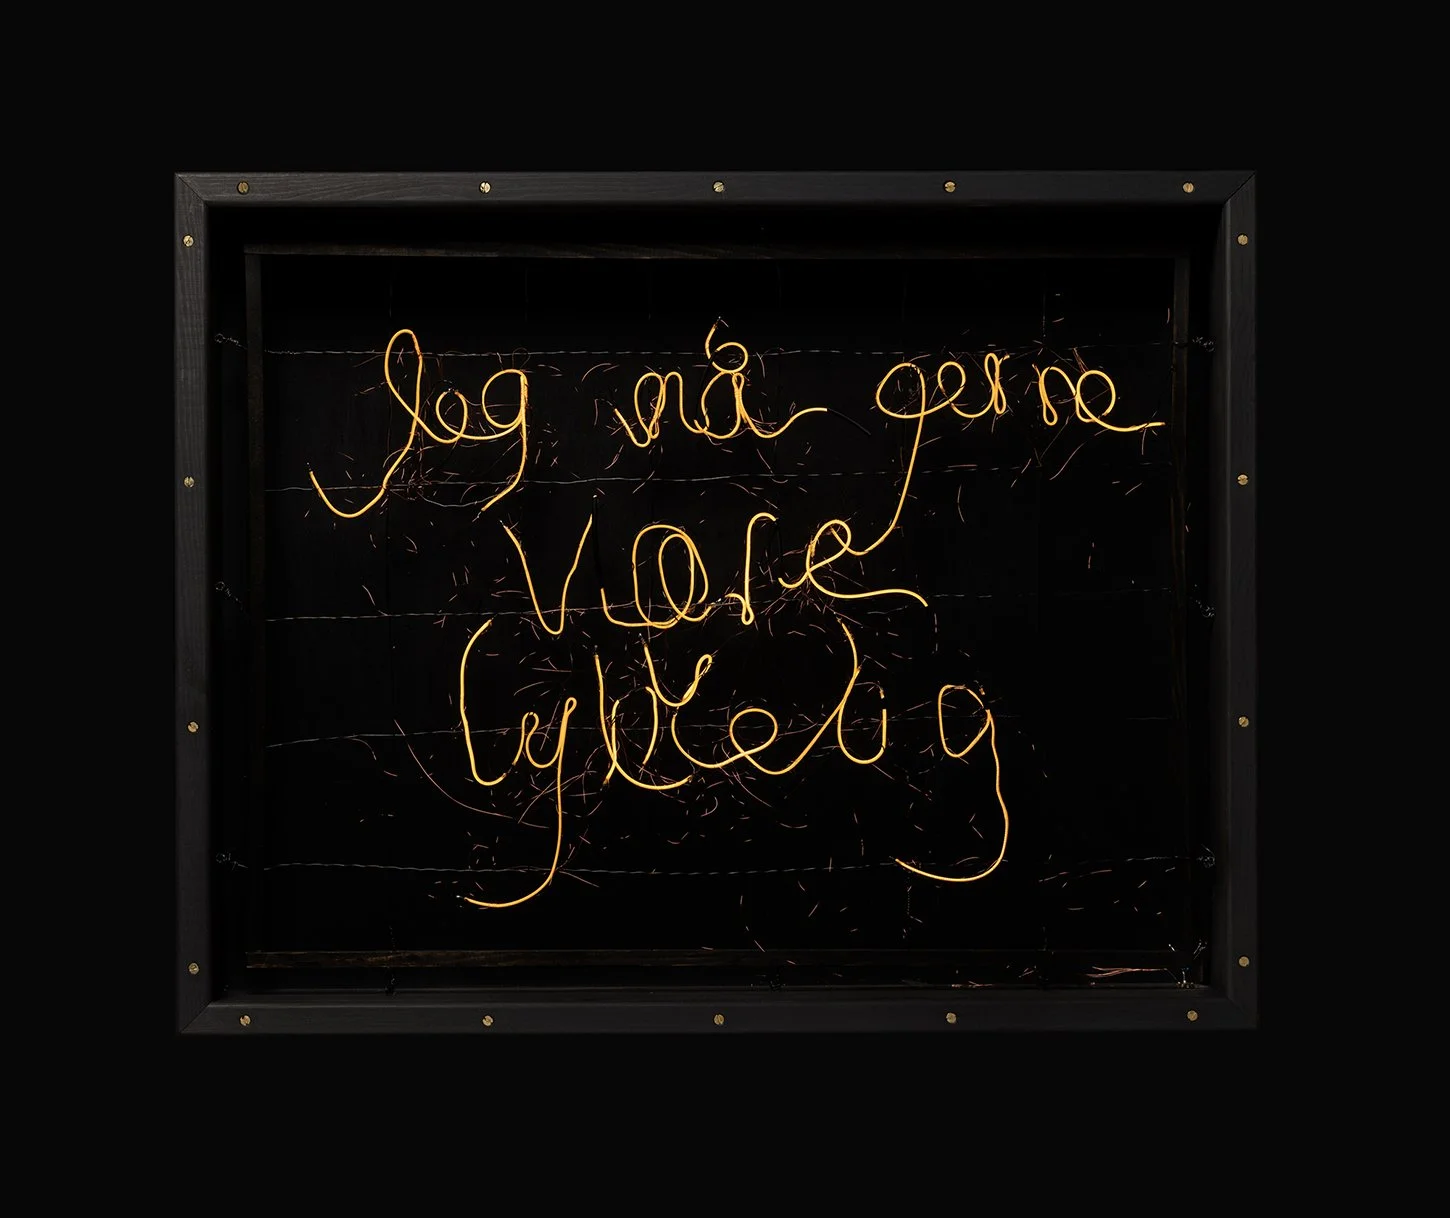 Jeg må gerne
være
lykkelig